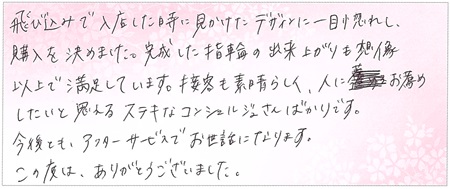 飛び込みで入店した時に見かけたデザインに一目惚れし、
購入を決めました。完成した指輪の出来上がりも想像
以上で満足しています。接客も素晴らしく、人にお薦め
したいと思えるステキなコンシェルジュさんばかりです。
今後とも、アフターサービスでお世話になります。
この度は、ありがとうございました。